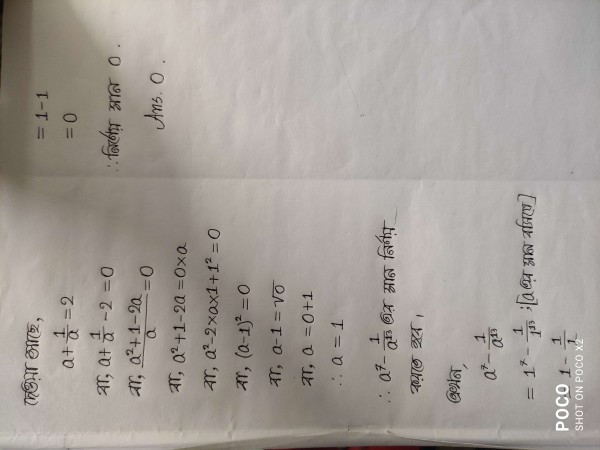 দেওয়া আছে,
a + 1/a = 2
বা, a + 1/a - 2 = 0
বা, (a² + 1 - 2a)/a = 0
বা, a² + 1 - 2a = 0 × a
বা, a² - 2 × a × 1 + 1² = 0
বা, (a - 1)² = 0
বা, a - 1 = √0
বা, a = 0 + 1
∴ a = 1
∴ a⁷ - 1/a¹³ এর মান নির্ণয়
করতে হবে।
এখন,
a⁷ - 1/a¹³
= 1⁷ - 1/1¹³ ; [a এর মান বসিয়ে]
1 - 1/1
= 1 - 1
= 0
∴ নির্ণেয় মান 0.
Ans. 0.
POCO
SHOT ON POCO X2